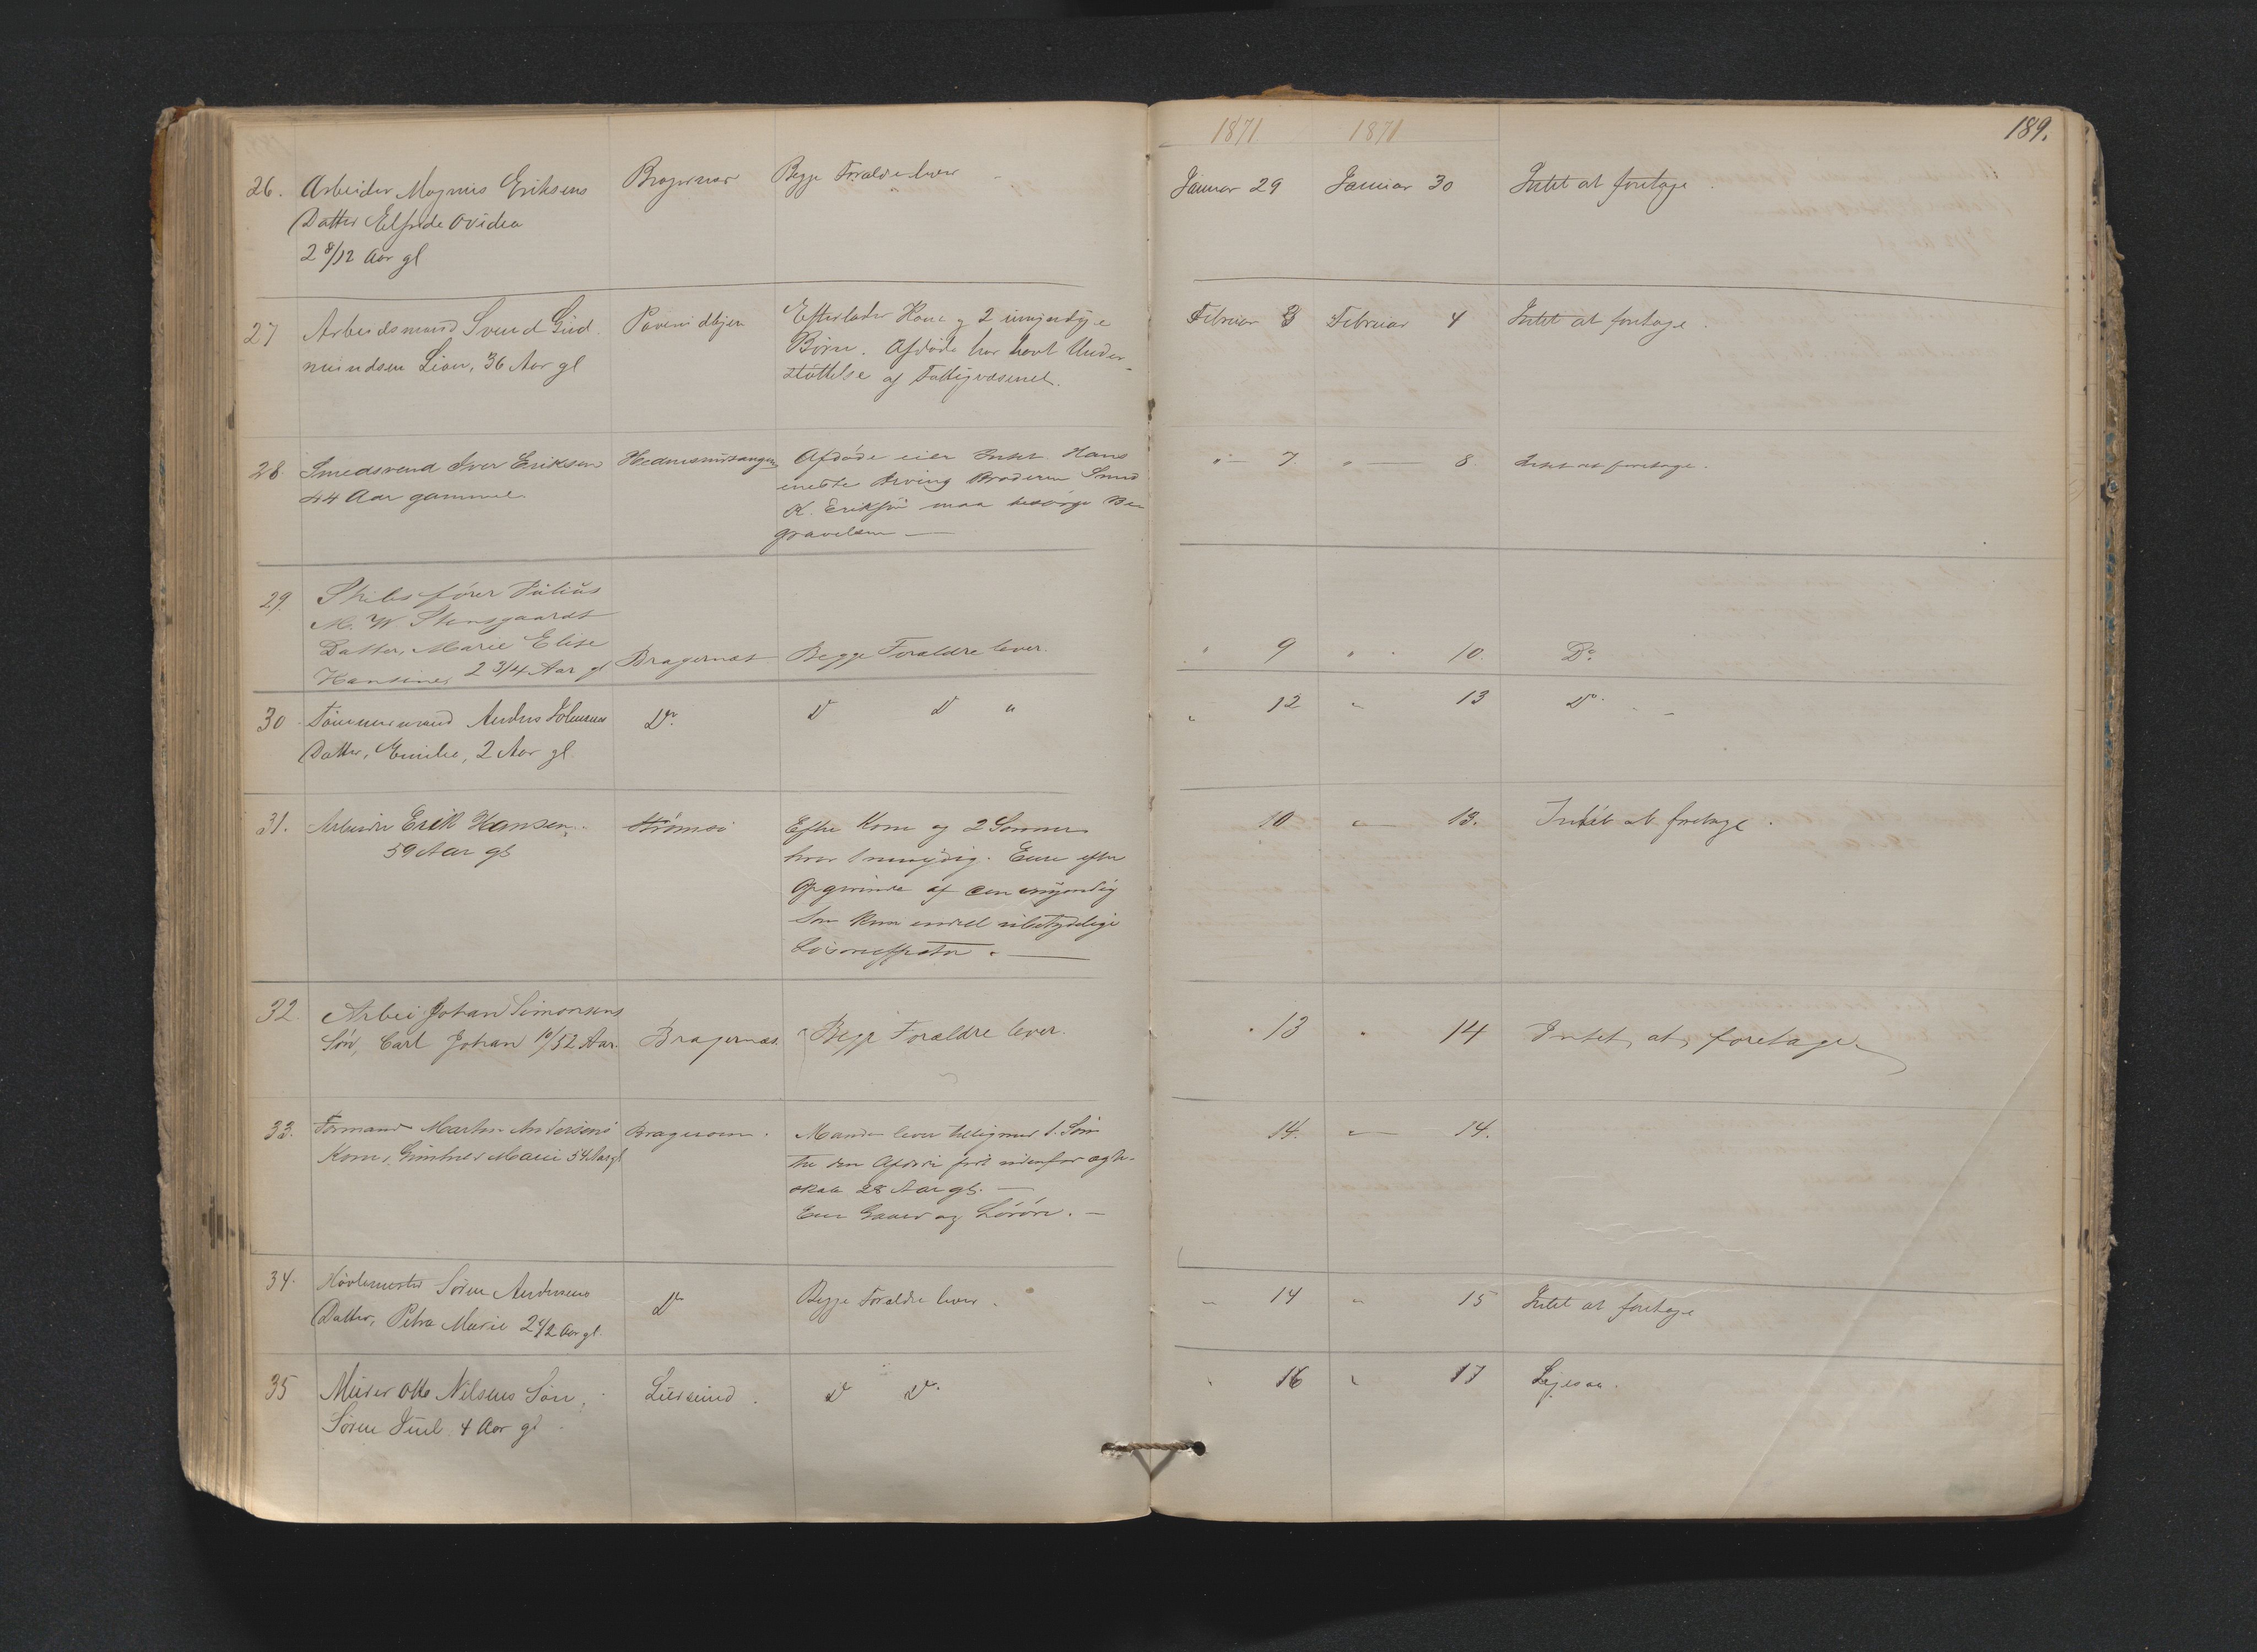 1871 1871 189.
26. Arbeider Magnus Eriksens Bragernæs Begge Forældre lever Januar 29 Januar 30 Intet at foretage.
Datter Elfride Ovidia
2 8/12 Aar gl
27 Arbeidsmand Svend Gud- Efterlader Kone og 2 umyndige Februar 3 Februar 4 Intet at foretage.
mundsen Lien, 36 Aar gl Børn. Afdøde har havt Under-
støttelse af Fattigvæsenet.
28. Smedsvend Iver Eriksen Afdøde eier Intet. Hans " 7. " 8. Intet at foretage.
44 Aar gammel. eneste Arving Broderen Smed
K. Eriksen maa besørge Be-
gravelsen —
29. Skibsfører Julius
M. W. Stensgaardt
Datter, Marie Elise
Hansine, 2 3/4 Aar gl Bragernæs Begge Forældre lever. " 9 " 10. Do.
30. Tømmermand Anders Do. D D " " 12 " 13 Do.
Datter, Emilie, 2 Aar gl.
31. Arbeider Erik Hansen. Strømsø Efter Kone og 2 Sønner 10 " 13. Intet at foretage.
59 Aar gl hvor 1 umyndig. Eier efter
Opgivende af en myndig
Søn kun endel ubetydelige
Løsøreeffecter. —
32. Arbei Johan Simonsens
Søn, Carl Johan 10/52 Aar. Bragernæs. Begge Forældre lever. " 13 " 14 Intet at foretage.
33. Formand Martin Andersens Bragernæs. Manden lever tilligemed 1 Søn 14. " 14.
Kone, Marie 54 Aar gl den Afdøde født udenfor Ægte-
skab 28 Aar gl. —
Eier Gaard og Løsøre. —
34. Høvlemester Søren Andersens D Begge Forældre lever. " 14 " 15 Intet at foretage
Datter, Petra Marie 2 1/2 Aar gl.
35 Murer Otto Nilsens Søn, Liersund. D D. " 16 " 17 Ligesaa.
Søren Juul 4 Aar gl.